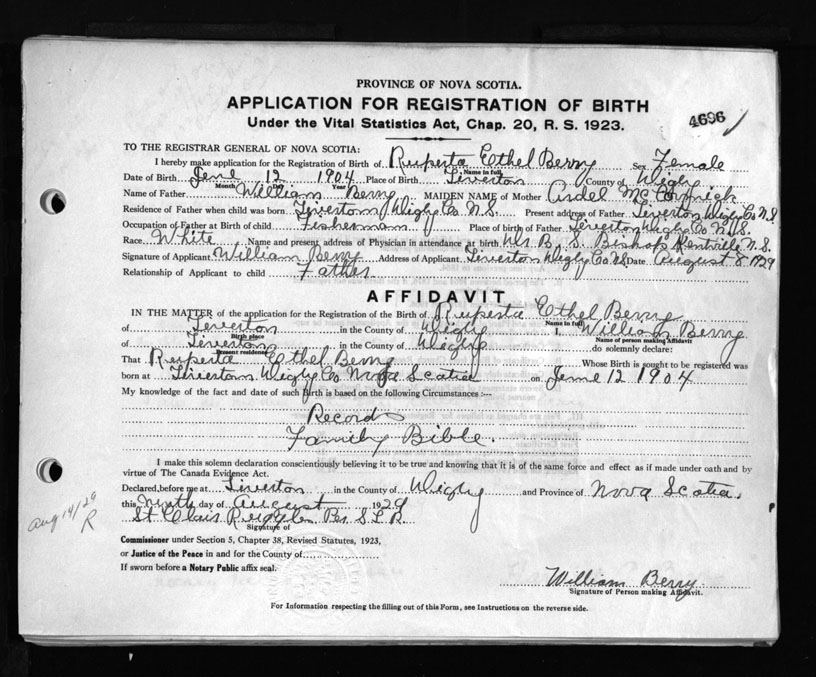 PROVINCE OF NOVA SCOTIA.
APPLICATION FOR REGISTRATION OF BIRTH
Under the Vital Statistics Act, Chap. 20, R. S. 1923.
4696
TO THE REGISTRAR GENERAL OF NOVA SCOTIA:
I hereby make application for the Registration of Birth of Ruperta Ethel Berry Sex Female
Name in full
Date of Birth June 12 1904 Place of Birth Tiverton County of Digby
Month Day Year
Name of Father William Berry MAIDEN NAME of Mother Ardel McCormick
Residence of Father when child was born Tiverton Digby Co N.S. Present address of Father Tiverton Digby Co N.S
Occupation of Father at Birth of child Fisherman Place of birth of Father Tiverton Digby Co N.S.
Race White Name and present address of Physician in attendance at birth Dr B. S. Bishop Kentville N.S.
Signature of Applicant William Berry Address of Applicant Tiverton Digby Co N.S Date August 8 1929
Relationship of Applicant to child Father
AFFIDAVIT
IN THE MATTER of the application for the Registration of the Birth of Ruperta Ethel Berry
Name in full
of Tiverton in the County of Digby I, William Berry
Birth place Name of person making Affidavit
of Tiverton in the County of Digby do solemnly declare:
Present residence
That Ruperta Ethel Berry Whose Birth is sought to be registered was
born at Tiverton Digby Co Nova Scotia on June 12 1904
My knowledge of the fact and date of such Birth is based on the following Circumstances :--
Records
Family Bible.
I make this solemn declaration conscientiously believing it to be true and knowing that it is of the same force and effect as if made under oath and by
virtue of The Canada Evidence Act.
Declared before me at Tiverton in the County of Digby and Province of Nova Scotia.
this Ninth day of August 1929
St Clair Ruggles
Signature of
Commissioner under Section 5, Chapter 38, Revised Statutes, 1923,
or Justice of the Peace in and for the County of
If sworn before a Notary Public affix seal.
William Berry
Signature of Person making Affidavit.
For Information respecting the filling out of this Form, see Instructions on the reverse side.
Aug 14/29
R